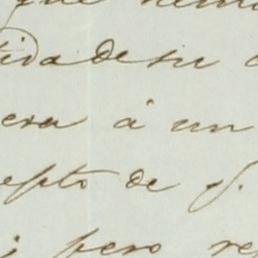 que
tida de su
era á un
epto de S.
; pero re